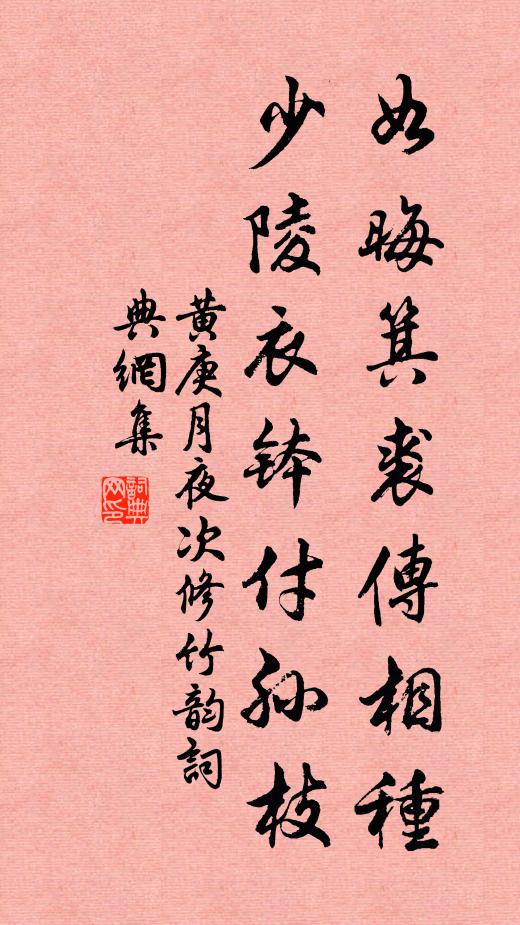 如晦箕裘傳相種
少陵衣钵付孙枝
黄庚月夜次修竹韵詞
典網集
詞典网印